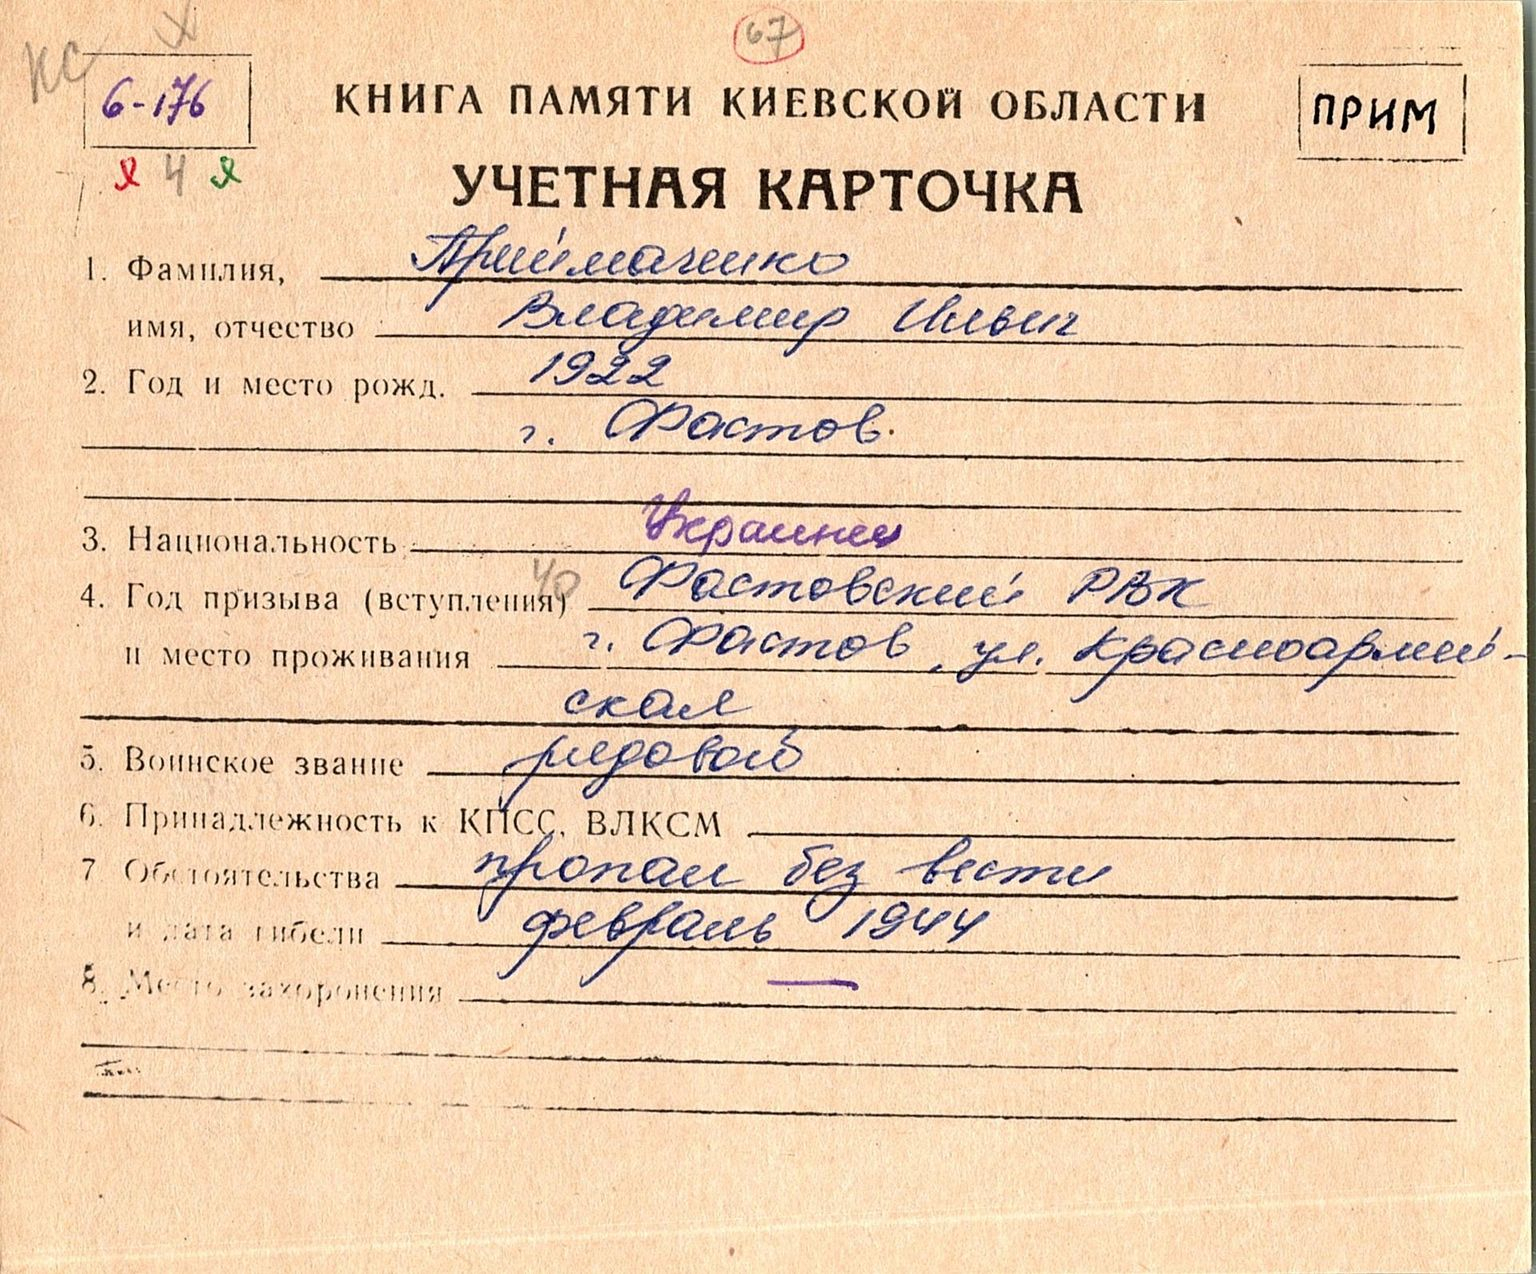 КС
67
6-176
КНИГА ПАМЯТИ КИЕВСКОЙ ОБЛАСТИ
ПРИМ
Я 4 Я
УЧЕТНАЯ КАРТОЧКА
1. Фамилия, Приймаченко
имя, отчество Владимир Ильич
2. Год и место рожд. 1922
г. Фастов.
3. Национальность Украинец
40
4. Год призыва (вступления) Фастовский РВК
и место проживания г. Фастов, ул. Красноармей-
ская
5. Воинское звание рядовой
6. Принадлежность к КПСС, ВЛКСМ
7 Обстоятельства пропал без вести
и дата гибели февраль 1944
8. Место захоронения —